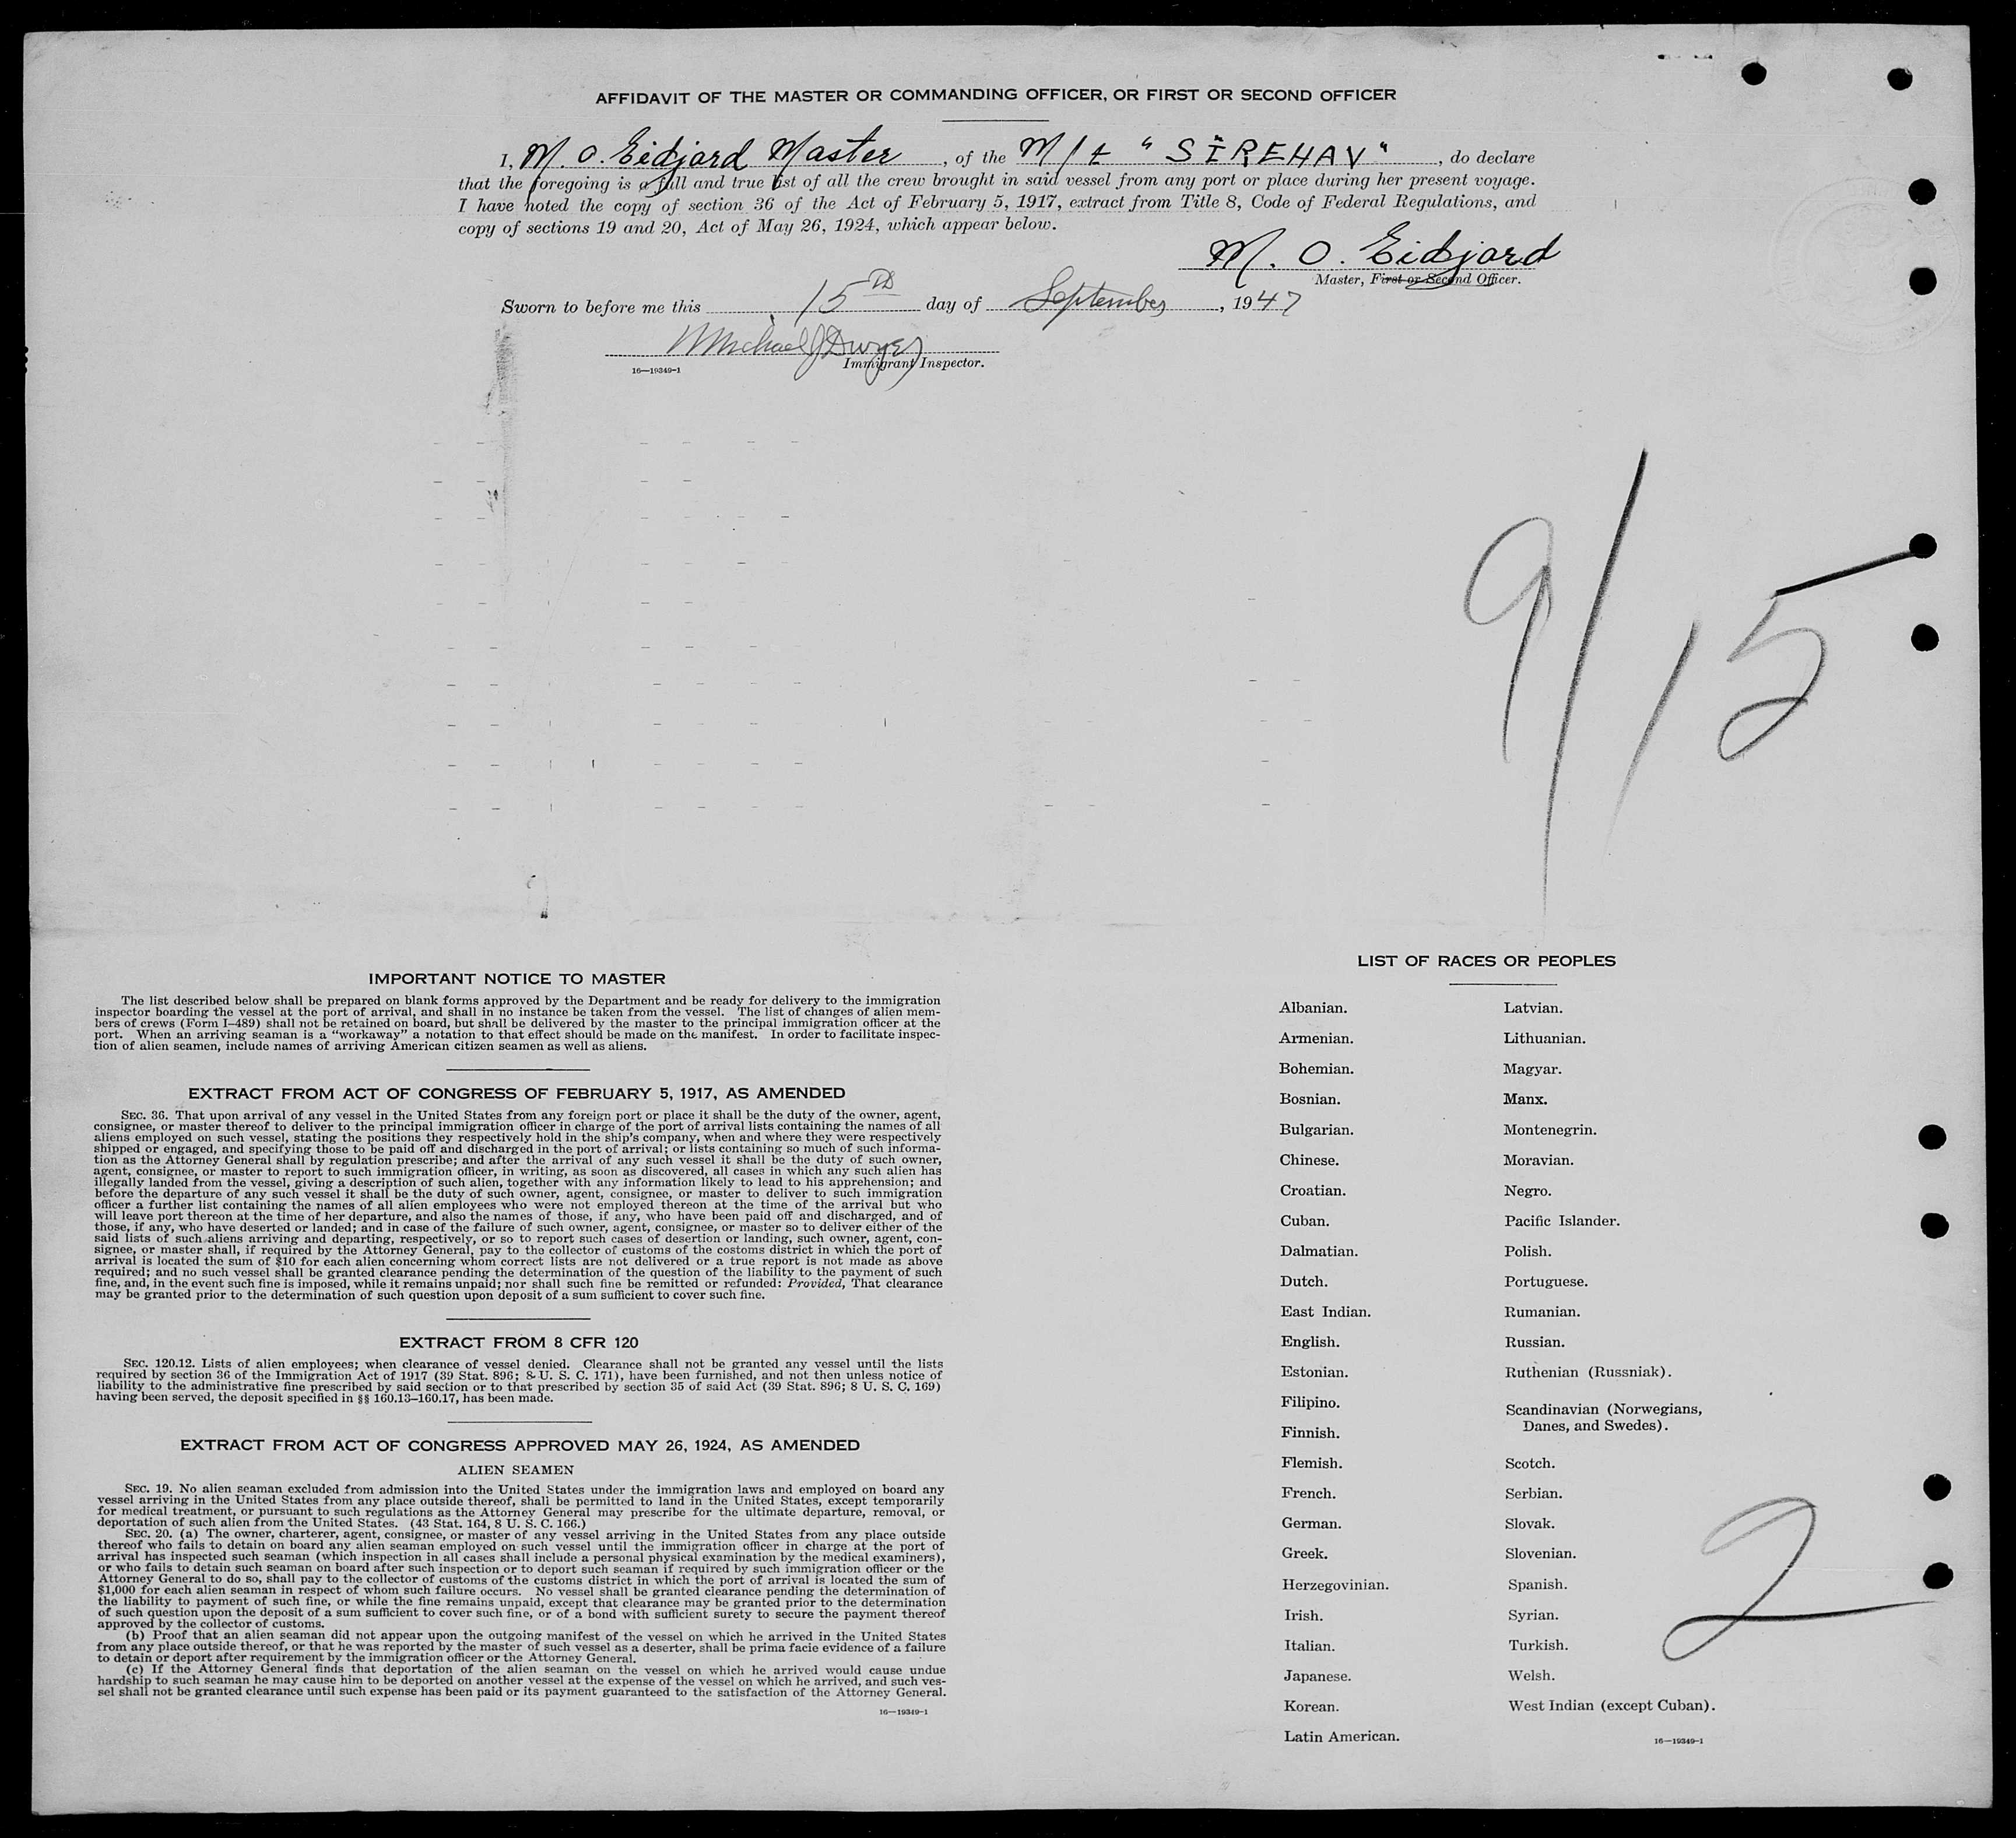 AFFIDAVIT OF THE MASTER OR COMMANDING OFFICER, OR FIRST OR SECOND OFFICER
I, M. O. Eidjord Master, of the M/t "SIREHAV", do declare
that the foregoing is a full and true list of all the crew brought in said vessel from any port or place during her present voyage.
I have noted the copy of section 36 of the Act of February 5, 1917, extract from Title 8, Code of Federal Regulations, and
copy of sections 19 and 20, Act of May 26, 1924, which appear below.
M. O. Eidjord
Master, First or Second Officer.
Sworn to before me this 15th day of September, 1947
Michael J Dwyer
Immigrant Inspector.
16—19349-1
9/15
IMPORTANT NOTICE TO MASTER
The list described below shall be prepared on blank forms approved by the Department and be ready for delivery to the immigration
inspector boarding the vessel at the port of arrival, and shall in no instance be taken from the vessel. The list of changes of alien mem-
bers of crews (Form I-489) shall not be retained on board, but shall be delivered by the master to the principal immigration officer at the
port. When an arriving seaman is a "workaway" a notation to that effect should be made on the manifest. In order to facilitate inspec-
tion of alien seamen, include names of arriving American citizen seamen as well as aliens.
EXTRACT FROM ACT OF CONGRESS OF FEBRUARY 5, 1917, AS AMENDED
SEC. 36. That upon arrival of any vessel in the United States from any foreign port or place it shall be the duty of the owner, agent,
consignee, or master thereof to deliver to the principal immigration officer in charge of the port of arrival lists containing the names of all
aliens employed on such vessel, stating the positions they respectively hold in the ship's company, when and where they were respectively
shipped or engaged, and specifying those to be paid off and discharged in the port of arrival; or lists containing so much of such informa-
tion as the Attorney General shall by regulation prescribe; and after the arrival of any such vessel it shall be the duty of such owner,
agent, consignee, or master to report to such immigration officer, in writing, as soon as discovered, all cases in which any such alien has
illegally landed from the vessel, giving a description of such alien, together with any information likely to lead to his apprehension; and
before the departure of any such vessel it shall be the duty of such owner, agent, consignee, or master to deliver to such immigration
officer a further list containing the names of all alien employees who were not employed thereon at the time of the arrival but who
will leave port thereon at the time of her departure, and also the names of those, if any, who have been paid off and discharged, and of
those, if any, who have deserted or landed; and in case of the failure of such owner, agent, consignee, or master so to deliver either of the
said lists of such aliens arriving and departing, respectively, or so to report such cases of desertion or landing, such owner, agent, con-
signee, or master shall, if required by the Attorney General, pay to the collector of customs of the costoms district in which the port of
arrival is located the sum of $10 for each alien concerning whom correct lists are not delivered or a true report is not made as above
required; and no such vessel shall be granted clearance pending the determination of the question of the liability to the payment of such
fine, and, in the event such fine is imposed, while it remains unpaid; nor shall such fine be remitted or refunded: Provided, That clearance
may be granted prior to the determination of such question upon deposit of a sum sufficient to cover such fine.
EXTRACT FROM 8 CFR 120
SEC. 120.12. Lists of alien employees; when clearance of vessel denied. Clearance shall not be granted any vessel until the lists
required by section 36 of the Immigration Act of 1917 (39 Stat. 896; 8 U. S. C. 171), have been furnished, and not then unless notice of
liability to the administrative fine prescribed by said section or to that prescribed by section 35 of said Act (39 Stat. 896; 8 U. S. C. 169)
having been served, the deposit specified in §§ 160.13-160.17, has been made.
EXTRACT FROM ACT OF CONGRESS APPROVED MAY 26, 1924, AS AMENDED
ALIEN SEAMEN
SEC. 19. No alien seaman excluded from admission into the United States under the immigration laws and employed on board any
vessel arriving in the United States from any place outside thereof, shall be permitted to land in the United States, except temporarily
for medical treatment, or pursuant to such regulations as the Attorney General may prescribe for the ultimate departure, removal, or
deportation of such alien from the United States. (43 Stat. 164, 8 U. S. C. 166.)
SEC. 20. (a) The owner, charterer, agent, consignee, or master of any vessel arriving in the United States from any place outside
thereof who fails to detain on board any alien seaman employed on such vessel until the immigration officer in charge at the port of
arrival has inspected such seaman (which inspection in all cases shall include a personal physical examination by the medical examiners),
or who fails to detain such seaman on board after such inspection or to deport such seaman if required by such immigration officer or the
Attorney General to do so, shall pay to the collector of customs of the customs district in which the port of arrival is located the sum of
$1,000 for each alien seaman in respect of whom such failure occurs. No vessel shall be granted clearance pending the determination of
the liability to payment of such fine, or while the fine remains unpaid, except that clearance may be granted prior to the determination
of such question upon the deposit of a sum sufficient to cover such fine, or of a bond with sufficient surety to secure the payment thereof
approved by the collector of customs.
(b) Proof that an alien seaman did not appear upon the outgoing manifest of the vessel on which he arrived in the United States
from any place outside thereof, or that he was reported by the master of such vessel as a deserter, shall be prima facie evidence of a failure
to detain or deport after requirement by the immigration officer or the Attorney General.
(c) If the Attorney General finds that deportation of the alien seaman on the vessel on which he arrived would cause undue
hardship to such seaman he may cause him to be deported on another vessel at the expense of the vessel on which he arrived, and such ves-
sel shall not be granted clearance until such expense has been paid or its payment guaranteed to the satisfaction of the Attorney General.
16—19349-1
LIST OF RACES OR PEOPLES
Albanian.
Armenian.
Bohemian.
Bosnian.
Bulgarian.
Chinese.
Croatian.
Cuban.
Dalmatian.
Dutch.
East Indian.
English.
Estonian.
Filipino.
Finnish.
Flemish.
French.
German.
Greek.
Herzegovinian.
Irish.
Italian.
Japanese.
Korean.
Latin American.
Latvian.
Lithuanian.
Magyar.
Manx.
Montenegrin.
Moravian.
Negro.
Pacific Islander.
Polish.
Portuguese.
Rumanian.
Russian.
Ruthenian (Russniak).
Scandinavian (Norwegians,
Danes, and Swedes).
Scotch.
Serbian.
Slovak.
Slovenian.
Spanish.
Syrian.
Turkish.
Welsh.
West Indian (except Cuban).
16—19349-1
2